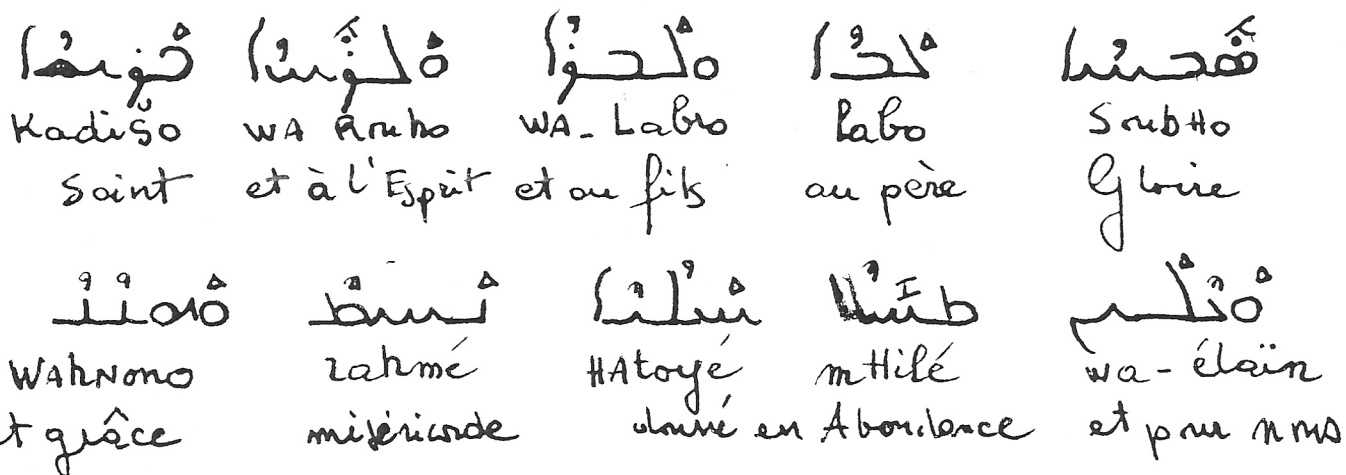 ܫܘܒܚܐ ܠܐܒܐ ܘܠܒܪܐ ܘܠܪܘܚܐ ܩܕܝܫܐ
Kadišo WA Rouho WA-Labro Labo SoubHo
Saint et à l'Esprit et au fils au père Gloire
ܘܥܠܝܢ ܡܚܝܠܐ ܚܛܝܐ ܪܚܡܐ ܘܚܢܢܐ
WAhNono rahmé HAtoyé mHilé wa-élaïn
t grâce miséricorde donné en Abondance et pour nous